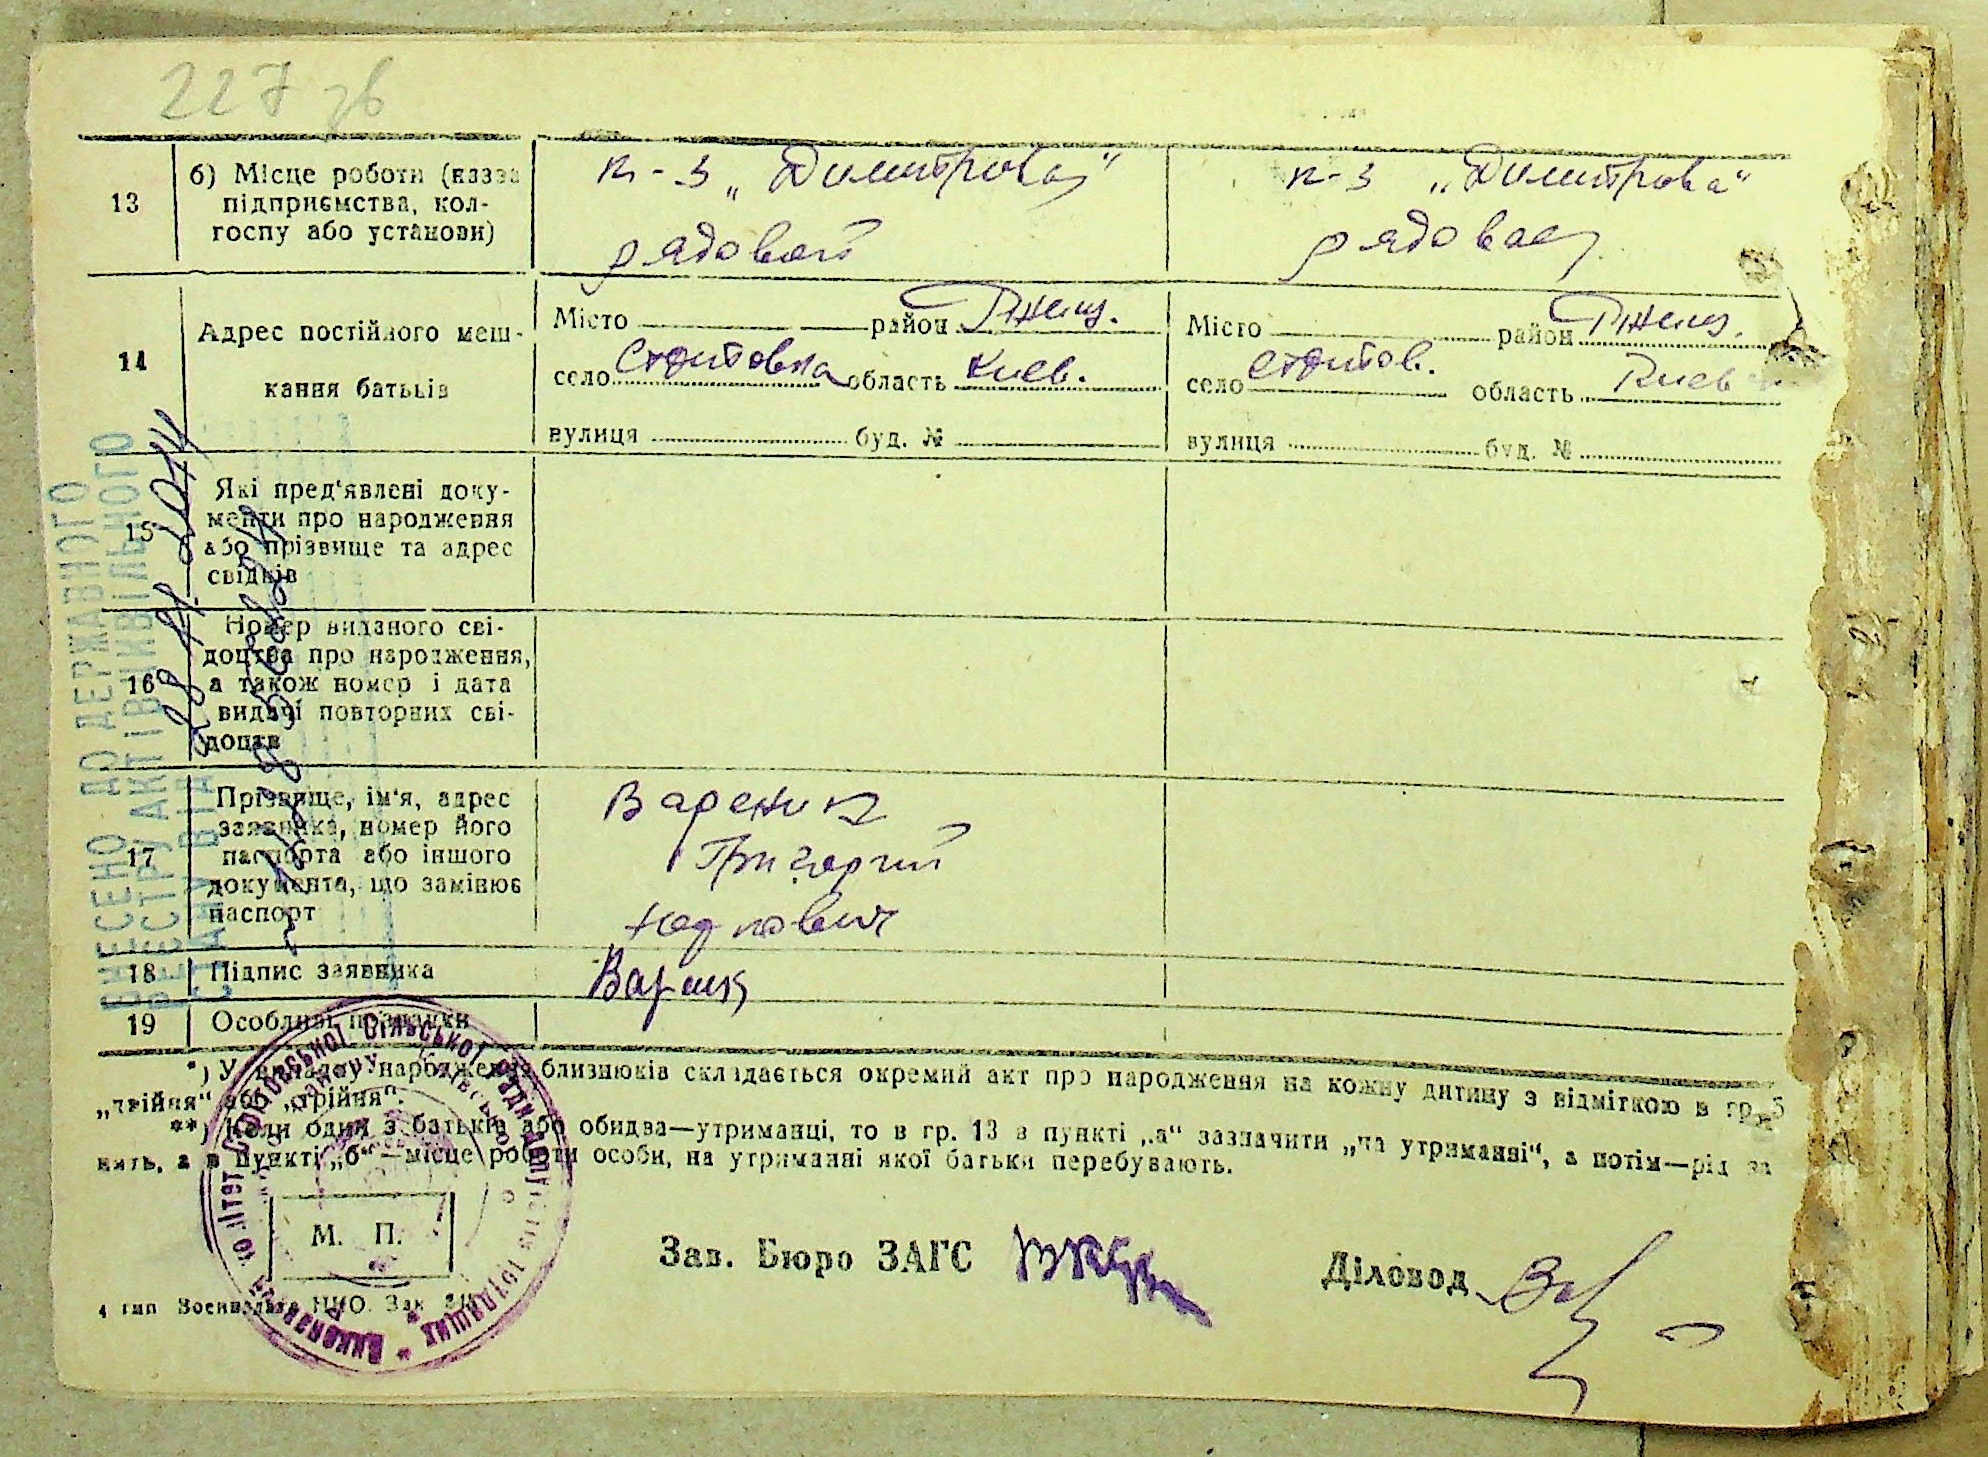 227 зв
13 б) Місце роботи (назва підприємства, колгоспу або установи)
к-з „Димитрова“
рядовой
к-з „Димитрова“
рядовая
14 Адрес постійного мешкання батьків
Місто район Ржищ.
село область Киев.
вулиця буд. №
Місто район Ржищ.
село область Киев
вулиця буд. №
15 Які пред'явлені документи про народження або прізвище та адрес свідків
16 Номер виданого свідоцтва про народження, а також номер і дата видачі повторних свідоцтв
17 Прізвище, ім'я, адрес заявника, номер його паспорта або іншого документа, що замінює паспорт
Вареник
Григорий
18 Підпис заявника
19 Особливі познаки
ВНЕСЕНО ДО ДЕРЖАВНОГО
РЕЄСТРУ АКТІВ ЦИВІЛЬНОГО
СТАНУ
*) У випадку народження близнюків складається окремий акт про народження на кожну дитину з відміткою в гр. 5
„двійня“ або „трійня“.
**) Коли один з батьків або обидва—утриманці, то в гр. 13 в пункті „а“ зазначити „на утриманні“, а потім—рід за
нять, а в пункті „б“—місце роботи особи, на утриманні якої батьки перебувають.
М. П.
Зав. Бюро ЗАГС
Діловод